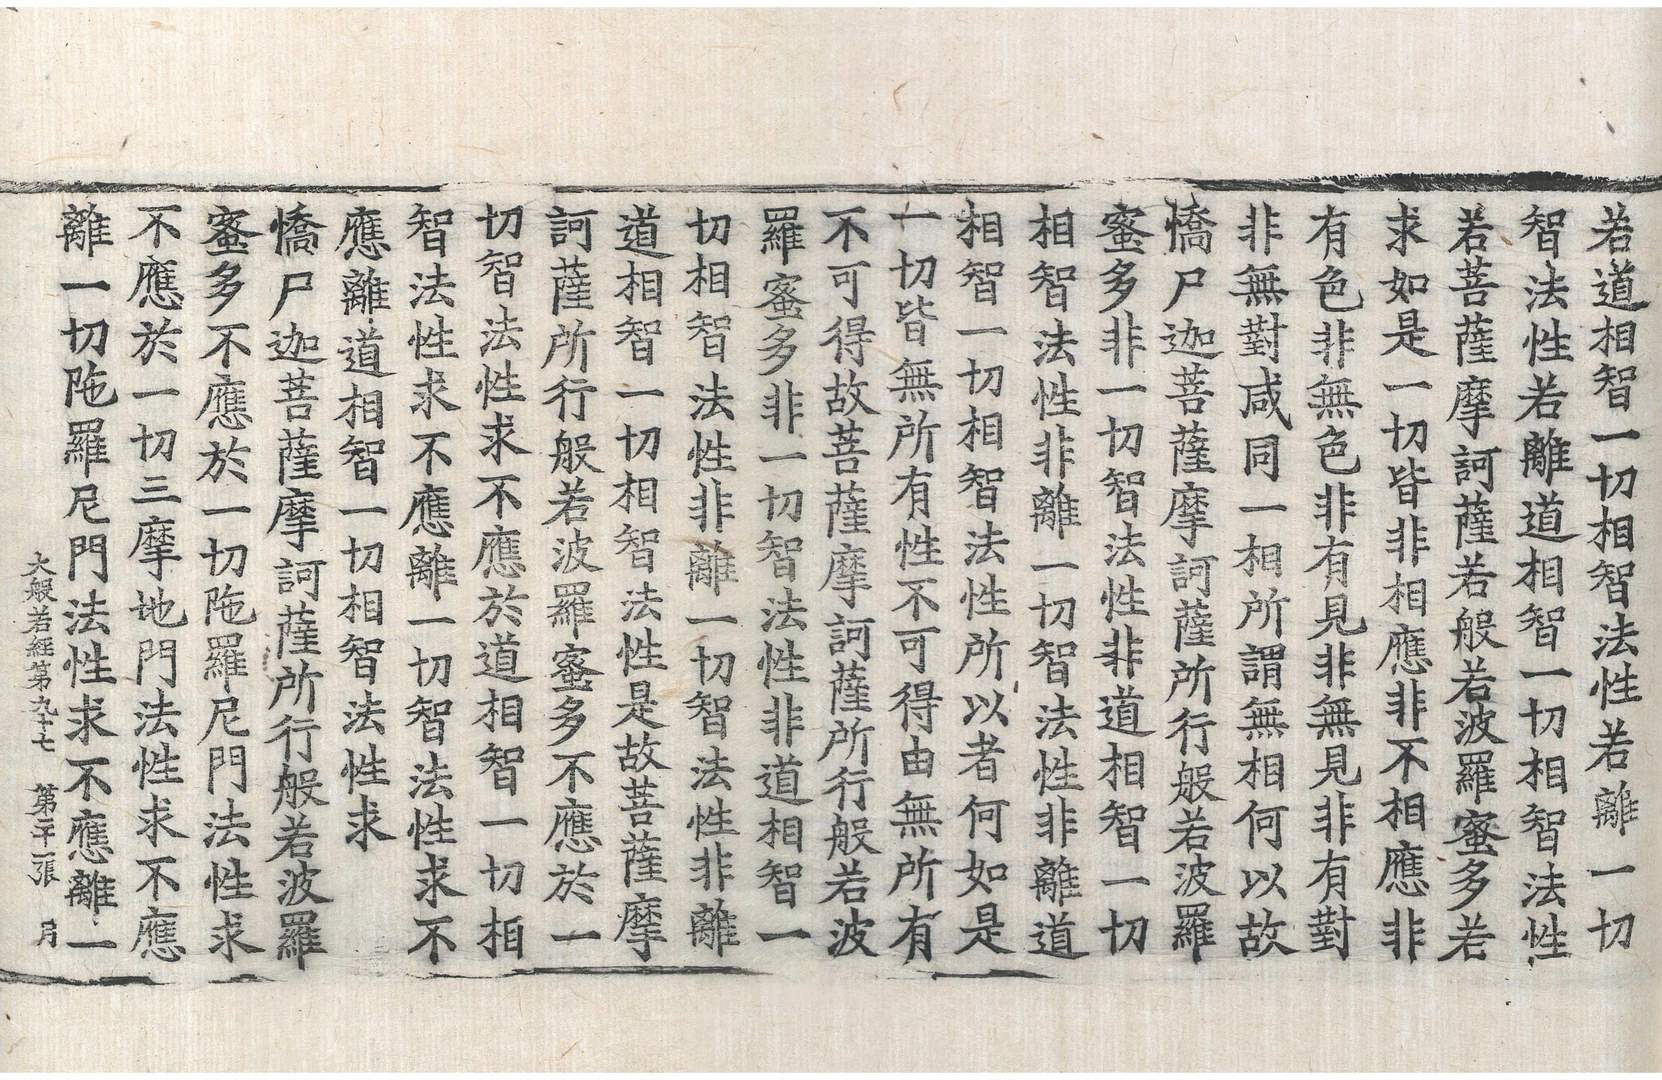 若道相智一切相智法性若離一切
智法性若離道相智一切相智法性
若菩薩摩訶薩若般若波羅蜜多若
求如是一切皆非相應非不相應非
有色非無色非有見非無見非有對
非無對咸同一相所謂無相何以故
憍尸迦菩薩摩訶薩所行般若波羅
蜜多非一切智法性非道相智一切
相智法性非離一切智法性非離道
相智一切相智法性所以者何如是
一切皆無所有性不可得由無所有
不可得故菩薩摩訶薩所行般若波
羅蜜多非一切智法性非道相智一
切相智法性非離一切智法性非離
道相智一切相智法性是故菩薩摩
訶薩所行般若波羅蜜多不應於一
切智法性求不應於道相智一切相
智法性求不應離一切智法性求不
應離道相智一切相智法性求
憍尸迦菩薩摩訶薩所行般若波羅
蜜多不應於一切陁羅尼門法性求
不應於一切三摩地門法性求不應
離一切陁羅尼門法性求不應離一
大般若經第九十七 第二十一張 月